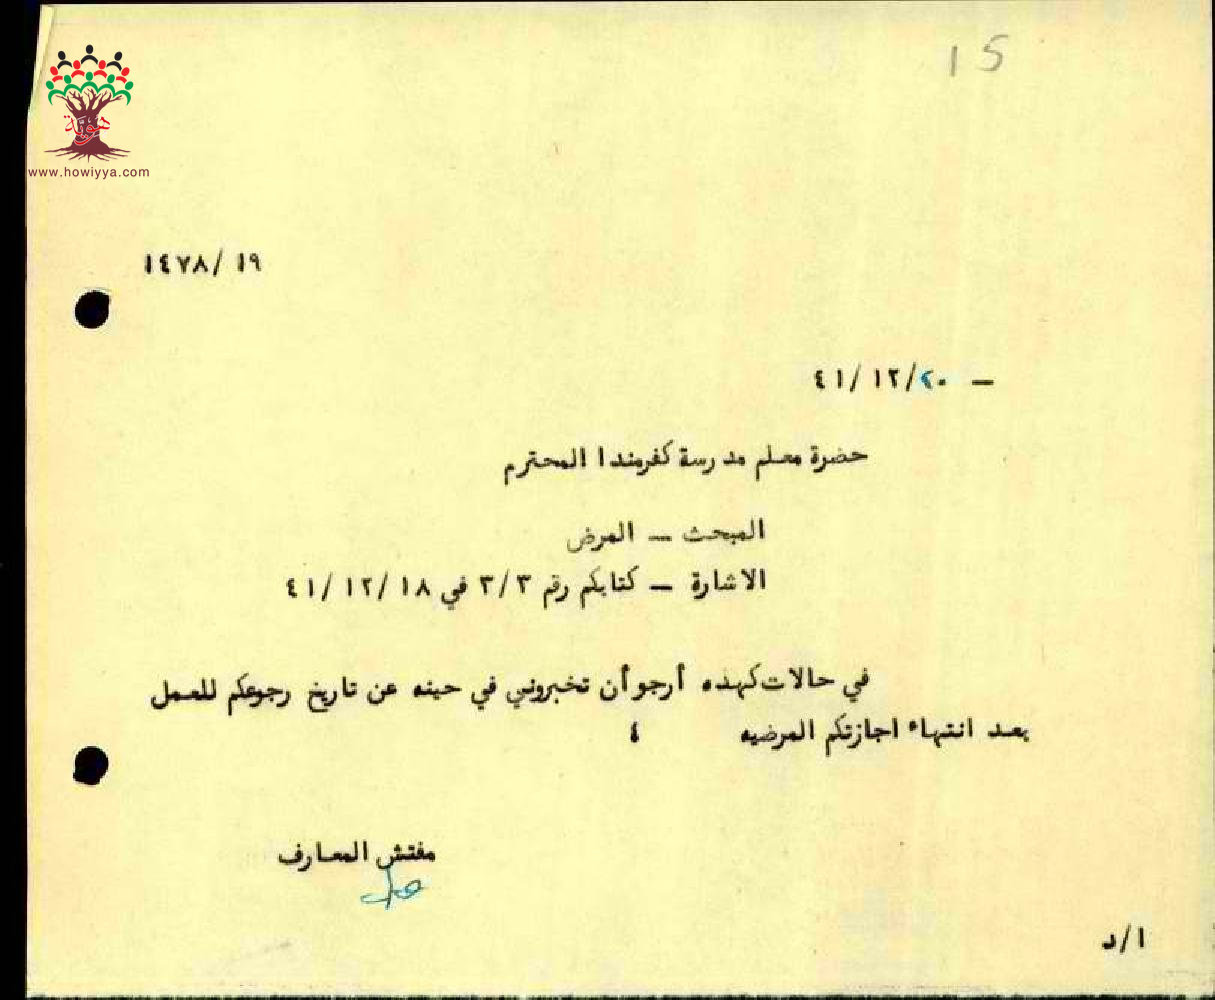 15
هوية
www.howiyya.com
١٤٧٨/ ١٩
٤١/ ١٢/٢٠ –
حضرة معلم مدرسة كفرمندا المحترم
المبحث – المرض
الاشارة – كتابكم رقم ٣/٣ في ١٨ /١٢ /٤١
في حالات كهذه أرجو أن تخبروني في حينه عن تاريخ رجوعكم للعمل
بعد انتهاء اجازتكم المرضيه ٤
مفتش المعارف
ا/د